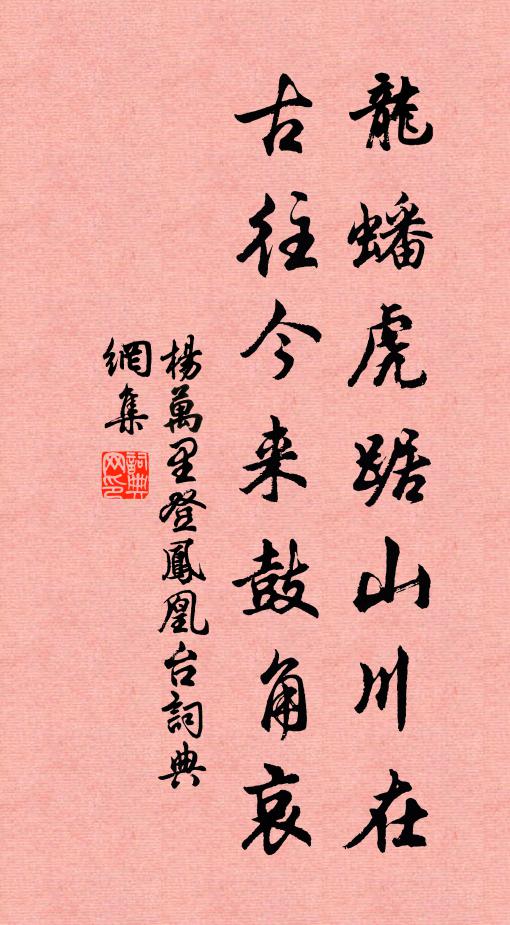 龍蟠虎踞山川在
古往今来鼓角哀
楊萬里登鳳凰台詞典
網集
詞典
网印